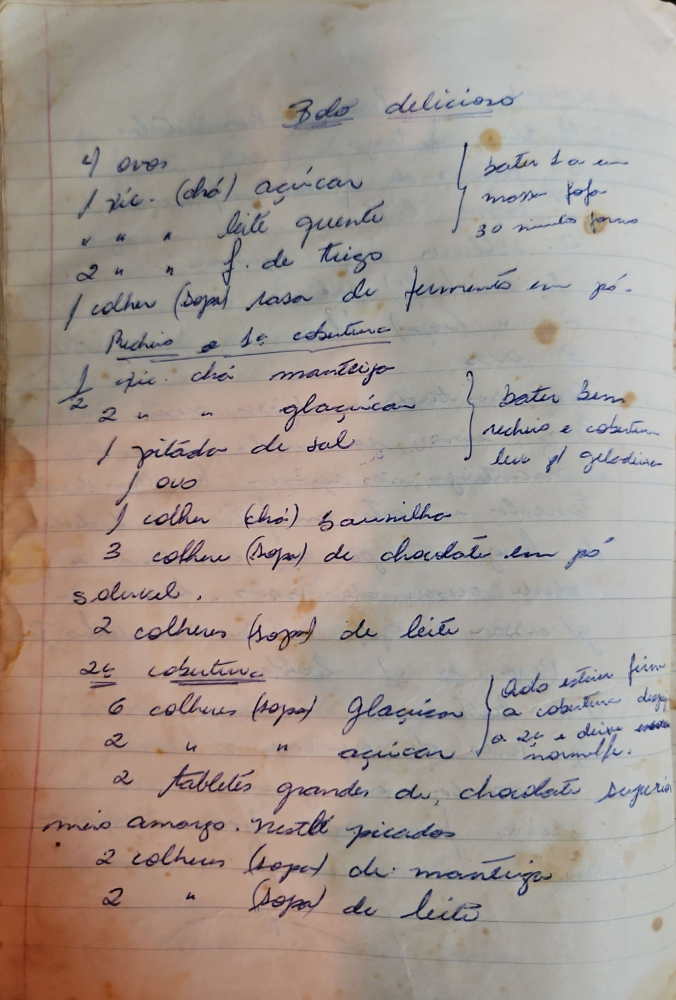 Bolo delicioso
4 ovos
1 xic. (chá) açúcar
" " " leite quente
2 " " f. de trigo
bater
massa fofa
30 minuto forno
1 colher (sopa) rasa de fermento em pó.
Recheio e 1ª cobertura
1/2 xic. chá manteiga
2 " " glaçúcar
1 pitáda de sal
bater bem
recheio e cobertura
leve p/ geladeira
1 ovo
1 colher (chá) baunilha
3 colheres (sopa) de chocolate em pó
soluvel.
2 colheres (sopa) de leite
2ª cobertura
6 colheres (sopa) glaçúcar
2 " " açúcar
Qdo estiver firm
a cobertura
a 2ª e deixe
2 tabletes grandes de chocolate
meio amargo. Nestlé picados
2 colheres (sopa) de manteiga
2 " (sopa) de leite